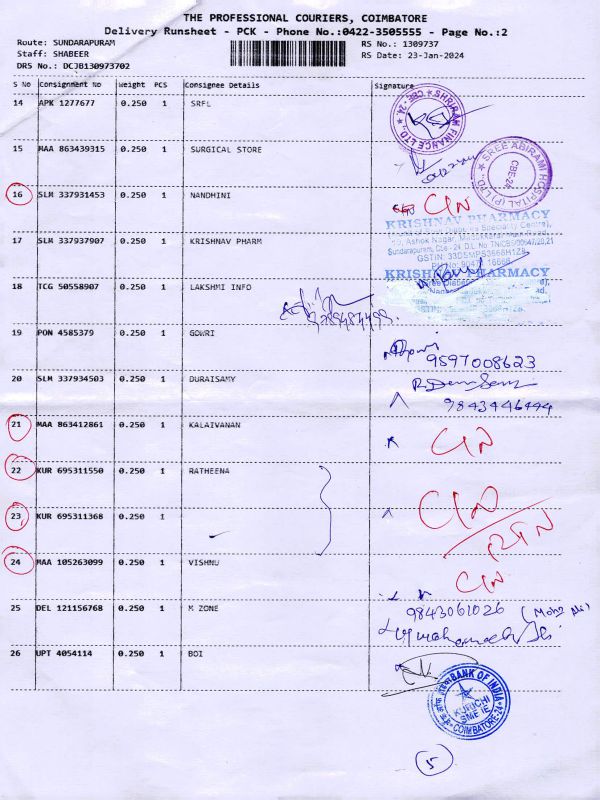 THE PROFESSIONAL COURIERS, COIMBATORE
Delivery Runsheet - PCK - Phone No.:0422-3505555 - Page No.:2
Route: SUNDARAPURAM RS No.: 1309737
Staff: SHABEER RS Date: 23-Jan-2024
DRS No.: DCJB130973702
S No Consignment No Weight PCS Consignee Details Signature
14 APK 1277677 0.250 1 SRFL
SHRIRAM FINANCE LTD., CBE-24
15 MAA 863439315 0.250 1 SURGICAL STORE
SREE ABIRAMI HOSPITAL (P) LTD., CBE-24
16 SLM 337931453 0.250 1 NANDHINI CIN
KRISHNAV PHARMACY
17 SLM 337937907 0.250 1 KRISHNAV PHARM
Ashok Nagar,
Sundarapuram, Cbe - 24
KRISHNAV PHARMACY
18 TCG 50558907 0.250 1 LAKSHMI INFO
19 PON 4585379 0.250 1 GOWRI
9597008623
20 SLM 337934503 0.250 1 DURAISAMY
9843446444
21 MAA 863412861 0.250 1 KALAIVANAN CIN
22 KUR 695311550 0.250 1 RATHEENA CIN
23 KUR 695311368 0.250 1 RTN
24 MAA 105263099 0.250 1 VISHNU CIN
25 DEL 121156768 0.250 1 M ZONE 9843061026
26 UPT 4054114 0.250 1 BOI
BANK OF INDIA
KURICHI
SME IE
COIMBATORE-24
5